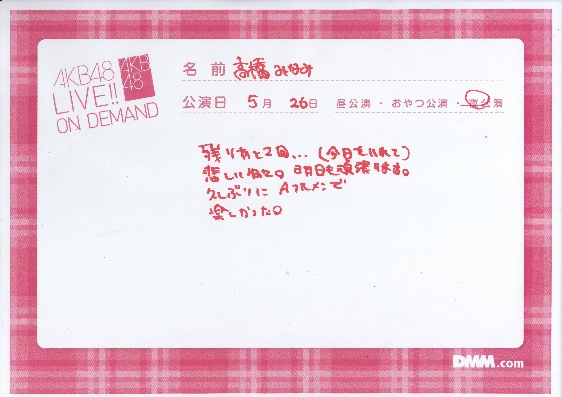 AKB48
LIVE!!
ON DEMAND
AKB
48
名 前 高橋みなみ
公演日 5月 26日 昼公演・おやつ公演・夜公演
残りあと2回...(今日をいれて)
悲しいねぇ。明日も頑張ります。
久しぶりに Aフルメンで
楽しかった。
DMM.com